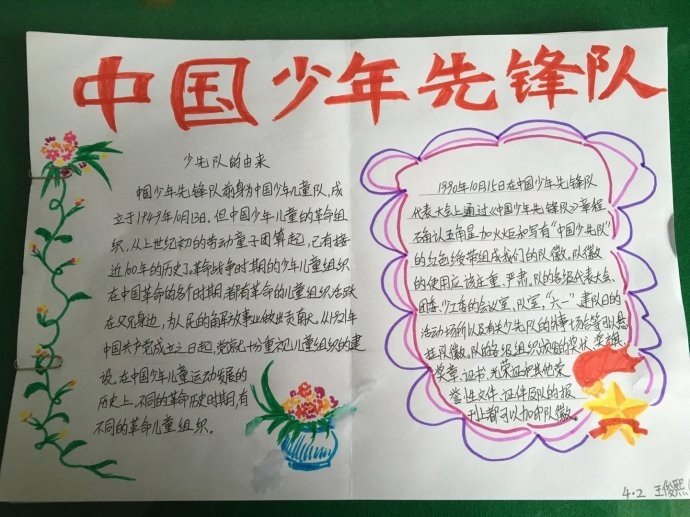 中国少年先锋队
少先队的由来
中国少年先锋队前身为中国少年儿童队,成
立于1949年10月13日,但中国少年儿童的革命组
织,从上世纪初的劳动童子团算起,已有接
近100年的历史了。革命战争时期的少年儿童组织
在中国革命的各个时期,都有革命的儿童组织活跃
在父兄身边,为人民的解放事业做出贡献。从1921年
中国共产党成立之日起,党就十分重视儿童组织的建
设。在中国少年儿童运动发展的
历史上,不同的革命历史时期,有
不同的革命儿童组织。
1990年10月15日在中国少年先锋队
代表大会上通过《中国少年先锋队》章程
确认五角星加火炬和写有“中国少先队”
的红色绶带组成我们的队徽。队徽
的使用应该庄重、严肃。队的各级代表大会、
团委、少工委的会议室、队室,“六一”建队日的
活动场所以及有关少先队的外事场合等可以悬
挂队徽。队的各级组织颁发的奖状、奖旗、
奖章、证书、光荣证和其他荣
誉性文件、证件及队的报
刊上都可以加印队徽。
4.2 王俊熙